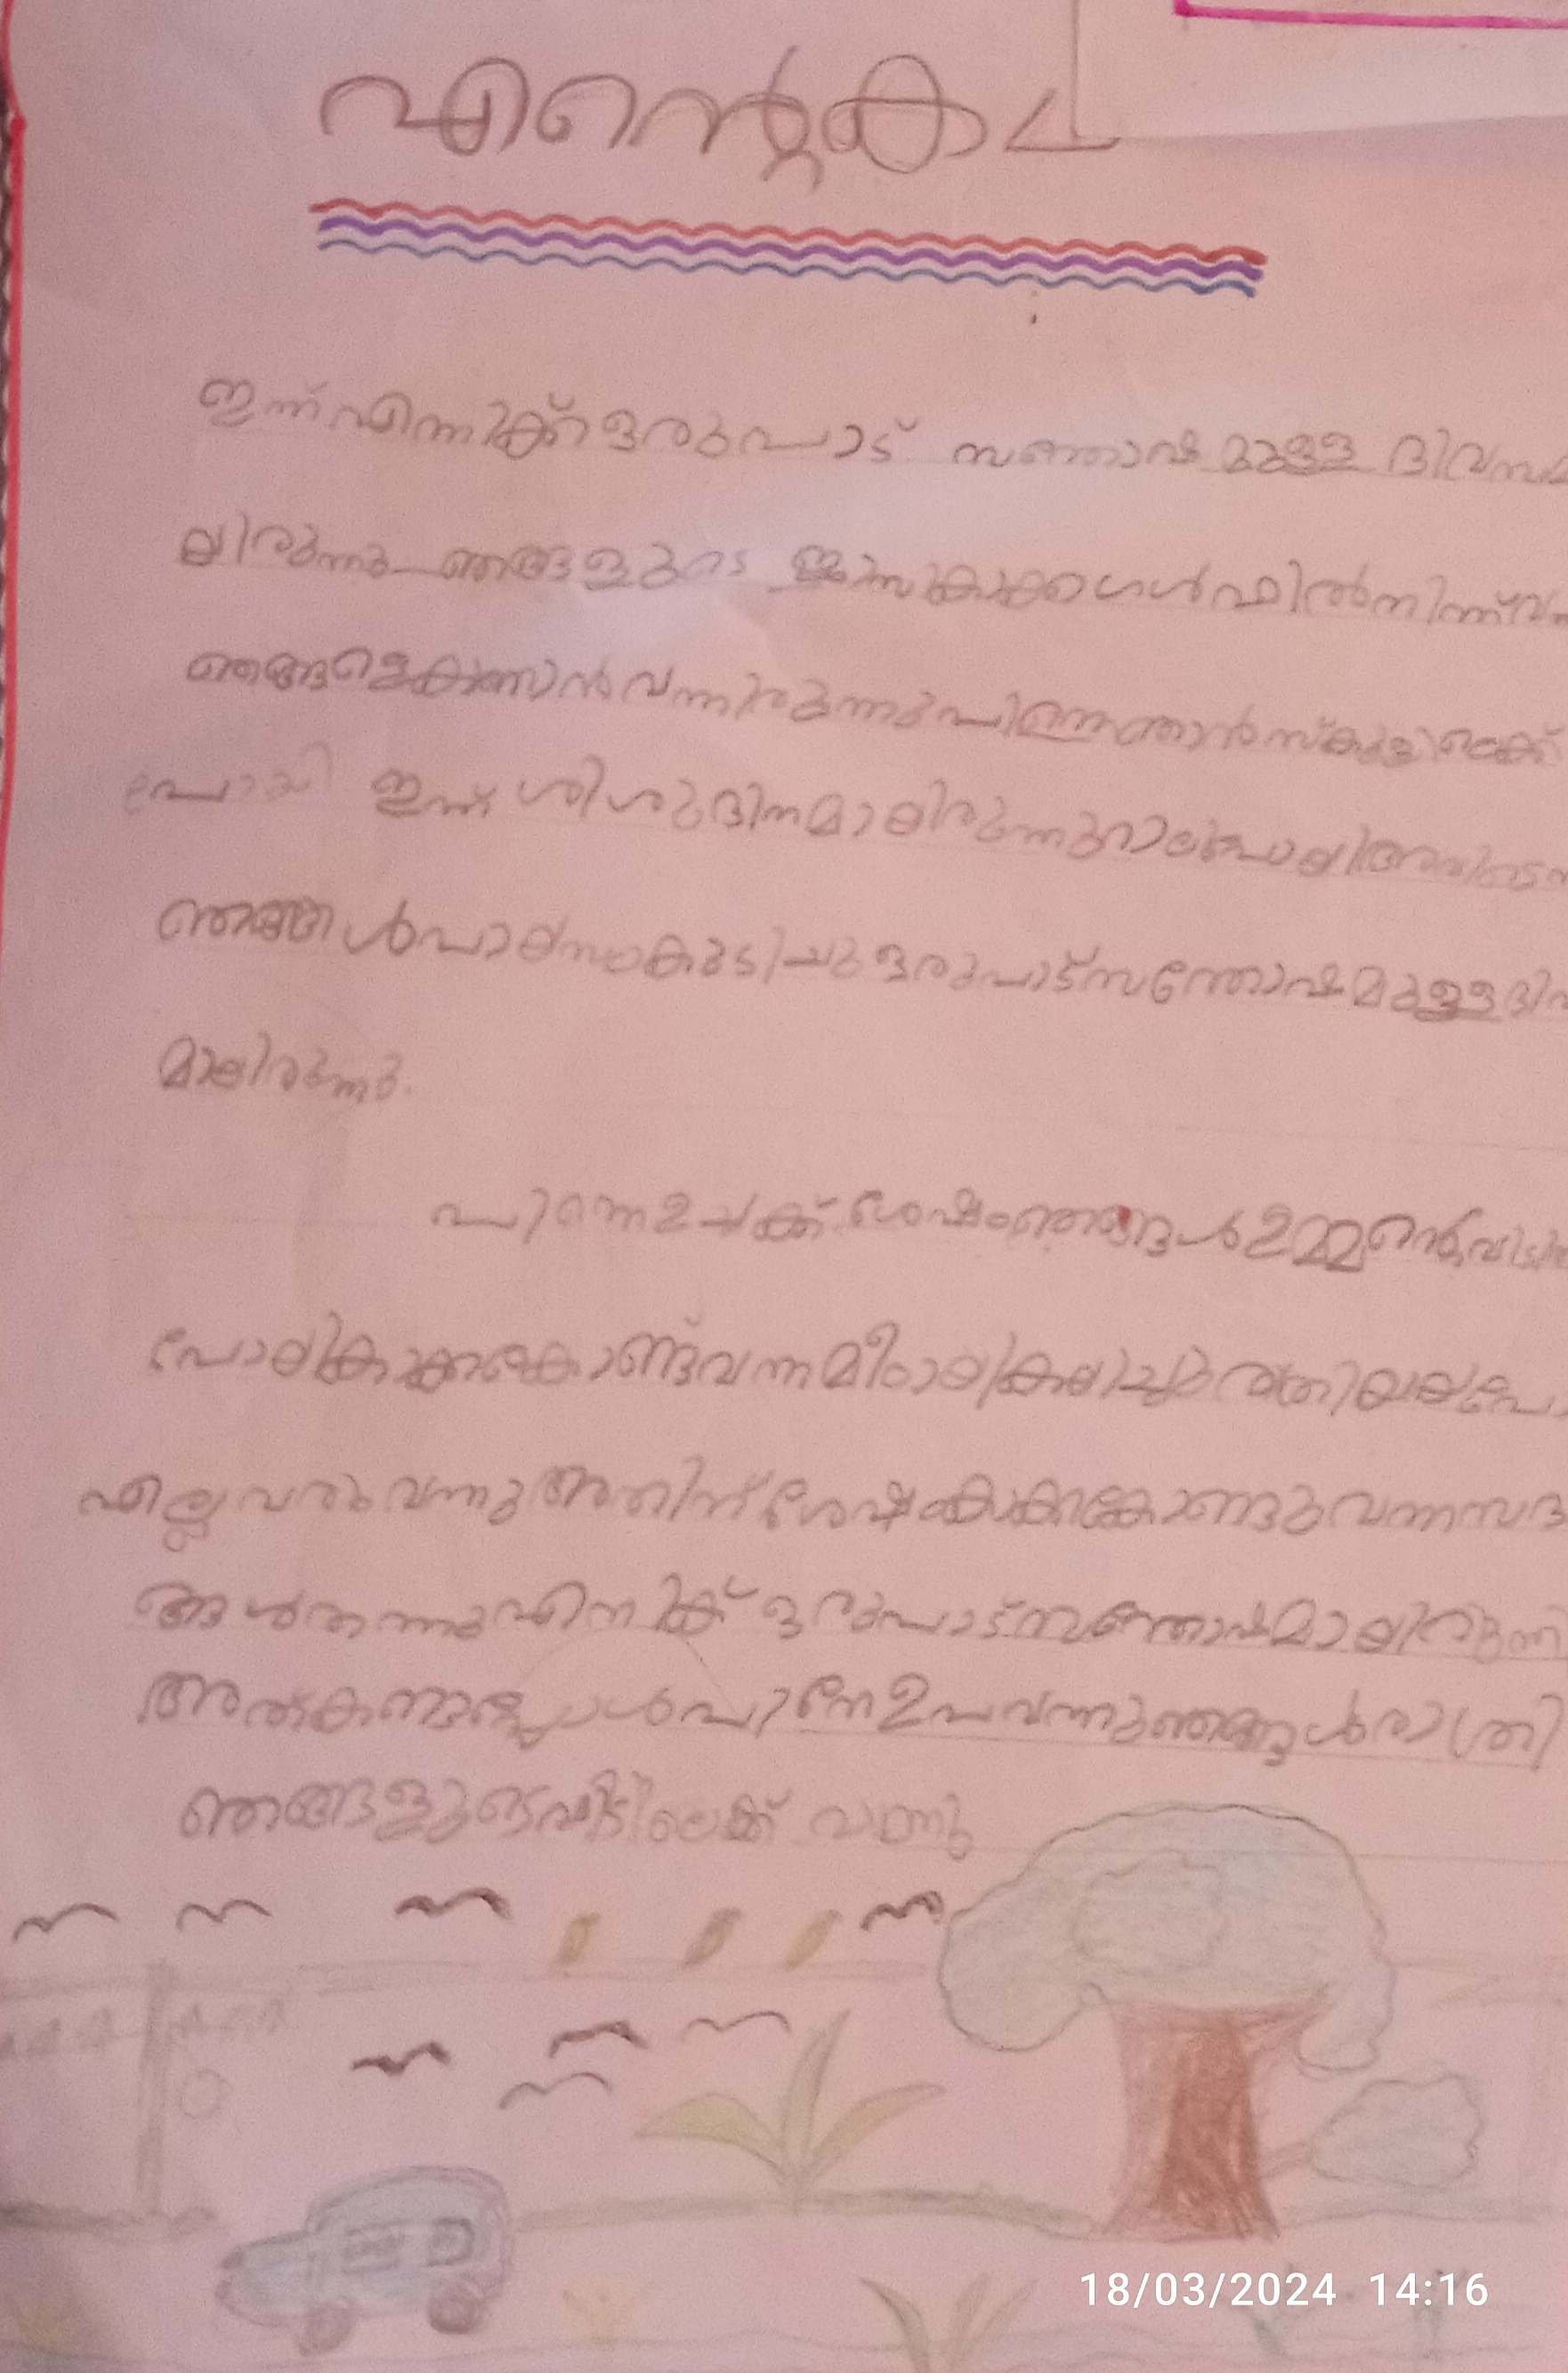 എന്റെ കഥ
ഇന്ന് എന്നിക്ക് ഒരുപാട് സന്തോഷ മുള്ള
യിരുന്നു ഞങ്ങളുടെ ഗൾഫിൽ നിന്ന്
ഞങ്ങളെ കാണാൻ വന്നിരുന്നു പിന്നെ ഞാൻ സ്കൂളിലേക്ക്
പോയി ഇന്ന് ശിശുദിനമായിരുന്നു റാലിപോയി
ഞങ്ങൾ പായസം കുടിച്ചു ഒരുപാട് സന്തോഷമുള്ള
മായിരുന്നു.
പിന്നെ ഉച്ചക്ക് ശേഷം ഞങ്ങൾ ഉമ്മന്റെ
പോയി കാക്ക കൊണ്ട് വന്ന മീഠായി രാത്രി
എല്ലവരും വന്നു അതിന് ശേഷം കാക്ക കോണ്ടുവന്ന
ങ്ങൾ തന്നു എനിക്ക് ഒരുപാട് സന്തോഷമായിരുന്നു
അത് കണ്ടപ്പോൾ പിന്നേ ഉപ വന്നു ഞങ്ങൾ രാത്രി
ഞങ്ങളുടെ വീട്ടിലേക്ക് വന്നു
18/03/2024 14:16